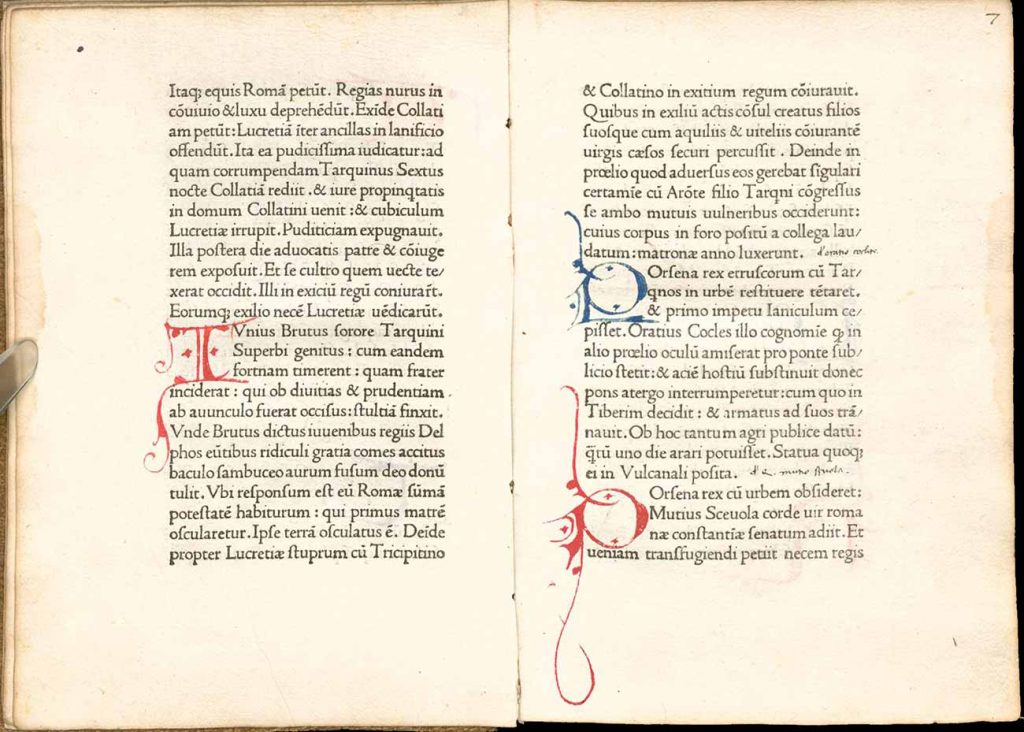 Itaq; equis Romã petũt. Regias nurus in
cõuiuio & luxu deprehẽdũt. Exĩde Collati
am petũt: Lucretiã ĩter ancillas in lanificio
offendũt. Ita ea pudicissima iudicatur: ad
quam corrumpendam Tarquinus Sextus
nocte Collatiã rediit . & iure propinqtatis
in domum Collatini uenit : & cubiculum
Lucretiæ irrupit. Puditiciam expugnauit.
Illa postera die aduocatis patre & cõiuge
rem exposuit. Et se cultro quem ueste te/
xerat occidit. Illi in exiciũ regũ coniurar̃t.
Eorumq; exilio necẽ Lucretiæ uẽdicarũt.
IVnius Brutus sorore Tarquini
Superbi genitus : cum eandem
fortnam timerent : quam frater
inciderat : qui ob diuitias & prudentiam
ab auunculo fuerat occisus: stultiã finxit.
Vnde Brutus dictus iuuenibus regiis Del
phos eũtibus ridiculi gratia comes accitus
baculo sambuceo aurum fusum deo donũ
tulit. Vbi responsum est eũ Romæ sũmã
potestatẽ habiturum : qui primus matrẽ
oscularetur. Ipse terrã osculatus ẽ. Deĩde
propter Lucretiæ stuprum cũ Tricipitino
7
& Collatino in exitium regum cõiurauit.
Quibus in exiliũ actis cõsul creatus filios
suosque cum aquiliis & uiteliis cõiurantẽ
uirgis cæsos securi percussit . Deinde in
prœlio quod aduersus eos gerebat sĩgulari
certamĩe cũ Arõte filio Tarqni cõgressus
se ambo mutuis uulneribus occiderunt:
cuius corpus in foro positũ a collega lau/
datum: matronæ anno luxerunt.
POrsena rex etruscorum cũ Tar/
qnos in urbẽ restituere tẽtaret.
& primo impetu Ianiculum ce/
pisset. Oratius Cocles illo cognomĩe q; in
alio prœlio oculũ amiserat pro ponte sub/
licio stetit: & aciẽ hostiũ substinuit donec
pons atergo interrumperetur: cum quo in
Tiberim decidit : & armatus ad suos trã/
nauit. Ob hoc tantum agri publice datũ:
q̃tũ uno die arari potuisset. Statua quoq;
ei in Vulcanali posita.
POrsena rex cũ urbem obsideret:
Mutius Sceuola corde uir roma
næ constantiæ senatum adiit. Et
ueniam transfugiendi petiit necem regis